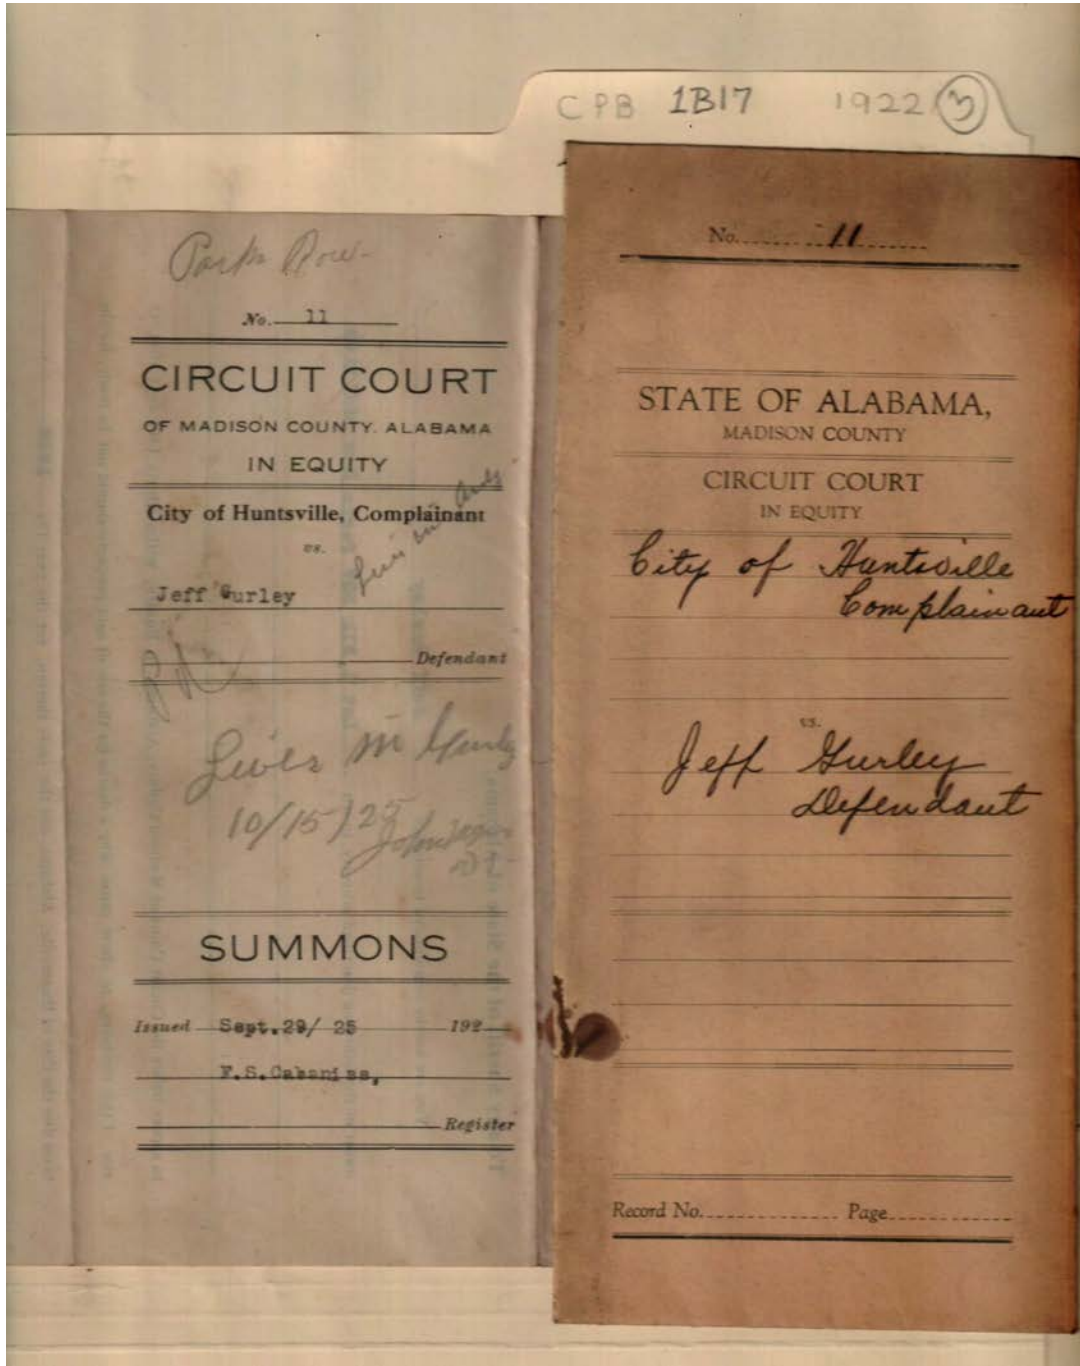 CPB 1B17 1922 3
Park Row-
No. 11
CIRCUIT COURT
OF MADISON COUNTY. ALABAMA
IN EQUITY
City of Huntsville, Complainant
vs.
Jeff Gurley
Defendant
Pd
Lives in Gurley
10/15/25
SUMMONS
Issued Sept.29/ 25 192
F.S.Cabaniss,
Register
No. 11
STATE OF ALABAMA,
MADISON COUNTY
CIRCUIT COURT
IN EQUITY
City of Huntsville
Complainant
vs.
Jeff Gurley
Defendant
Record No. Page